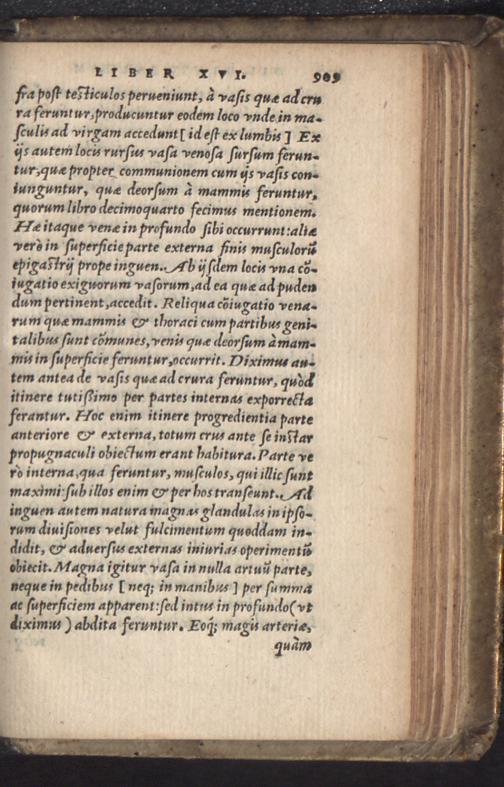 LIBER XVI. 909
fra post testiculos perueniunt, à vasis quæ ad cru
ra feruntur, producuntur eodem loco vnde in ma-
sculis ad virgam accedunt [ id est ex lumbis ] Ex
ijs autem locis rursus vasa venosa sursum ferun-
tur, quæ propter communionem cum ijs vasis con-
iunguntur, quæ deorsum à mammis feruntur,
quorum libro decimoquarto fecimus mentionem.
Hæ itaque venæ in profundo sibi occurrunt: aliæ
verò in superficie parte externa finis musculorū
epigastrij prope inguen. Ab ijsdem locis vna cō-
iugatio exiguorum vasorum, ad ea quæ ad puden
dum pertinent, accedit. Reliqua cōiugatio vena-
rum quæ mammis & thoraci cum partibus geni-
talibus sunt cōmunes, venis quæ deorsum à mam-
mis in superficie feruntur, occurrit. Diximus au-
tem antea de vasis quæ ad crura feruntur, quòd
itinere tutissimo per partes internas exporrecta
ferantur. Hoc enim itinere progredientia parte
anteriore & externa, totum crus ante se instar
propugnaculi obiectum erant habitura. Parte ve
rò interna, qua feruntur, musculos, qui illic sunt
maximi: sub illos enim & per hos transeunt. Ad
inguen autem natura magnas glandulas in ipso-
rum diuisiones velut fulcimentum quoddam in-
didit, & aduersus externas iniurias operimentū
obiecit. Magna igitur vasa in nulla artuū parte,
neque in pedibus [ neq; in manibus ] per summa
ac superficiem apparent: sed intus in profundo ( vt
diximus ) abdita feruntur. Eoq; magis arteriæ,
quàm